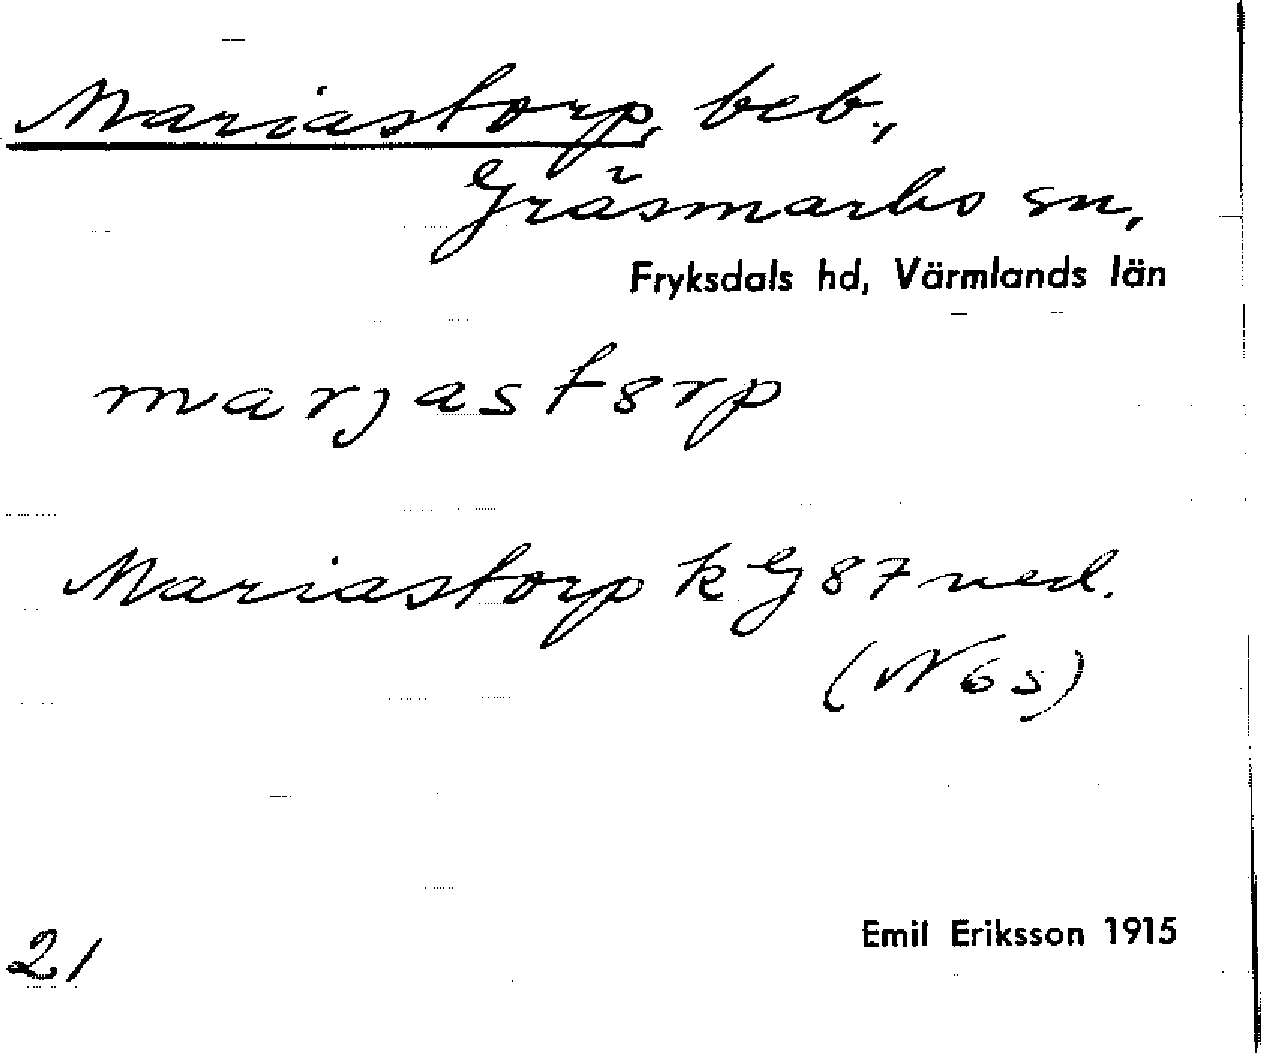 Mariastorp, beb.,
Gräsmarks sn,
Fryksdals hd, Värmlands län
marjast8rp
Mariastorp k G 87 ned.
(N 6 s)
21
Emil Eriksson 1915